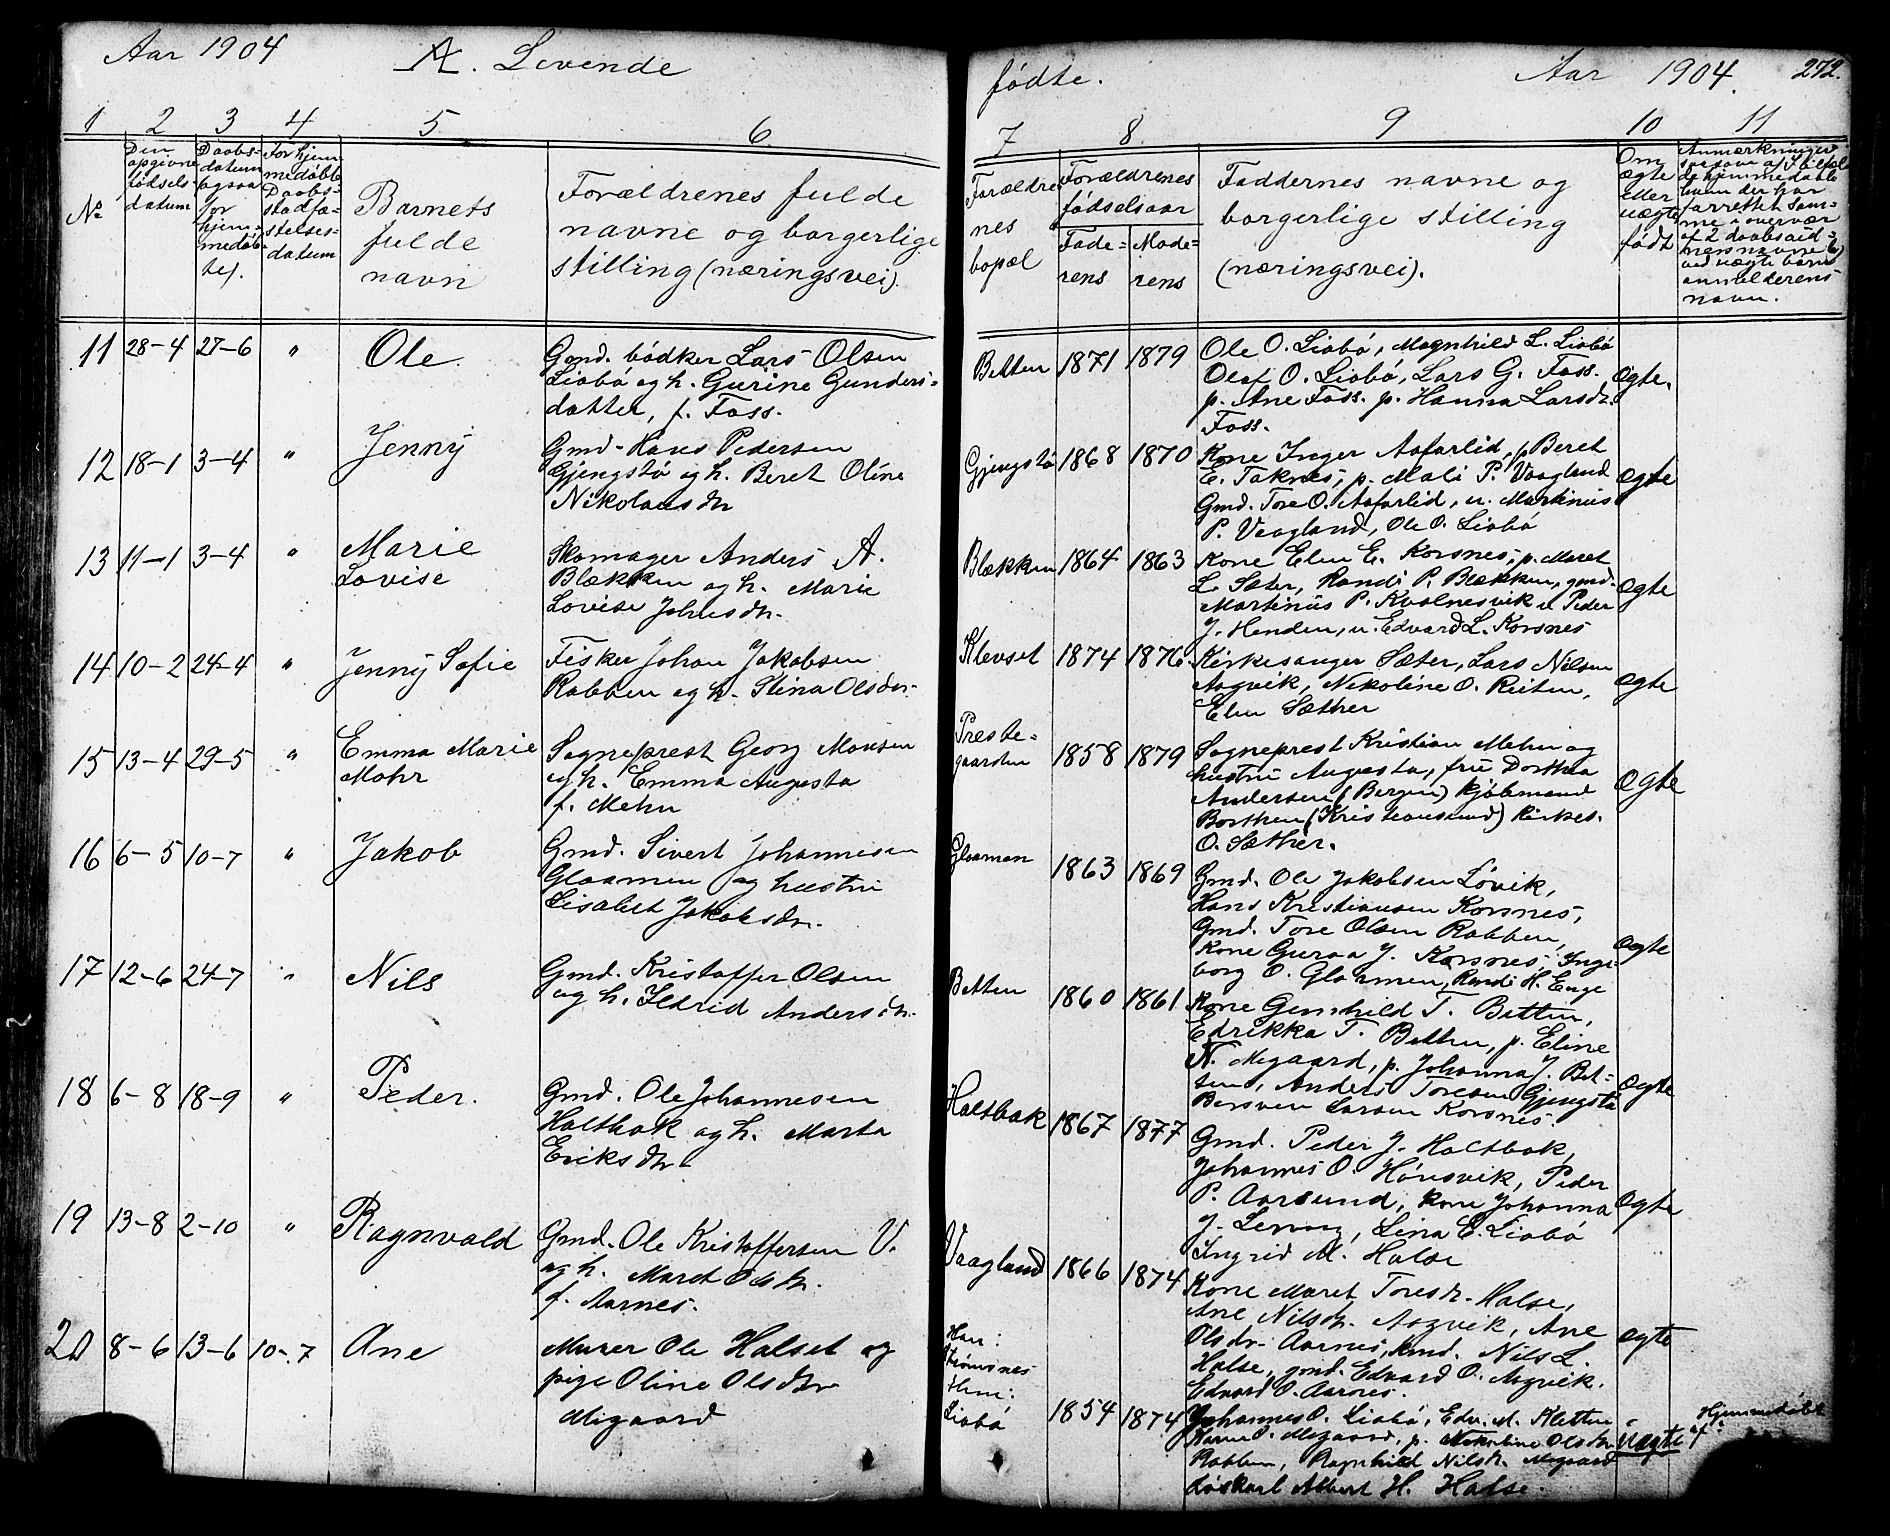 Aar 1904 A. Levende
fødte. Aar 1904. 272.
1 2 3 4 5 6
7 8 9 10 11
No
Den
opgivne
fødsels-
datum
Daabs-
datum
(ogsaa
for
hjem-
medøb-
te).
For hjem-
medøbte
Daabs-
stadfæ-
stelses-
datum
Barnets
fulde
navn
Forældrenes fulde
navne og borgerlige
stilling (næringsvei).
Forældre
nes
bopæl
Forældrenes
fødselsaar
Fade-
rens
Mode-
rens
Faddernes navne og
borgerlige stilling
(næringsvei).
Om
ægte
eller
uægte
født
Anmærkninger
navn.
11 28-4 27-6 " Ole
Gmd. bødker Lars Olsen
Liabø og h. Gurine Gunders-
datter, f. Foss.
Betten 1871 1879
Ole O. Liabø, Magnhild L. Liabø
Olaf O. Liabø, Lars G. Foss.
p. Ane Foss. p. Hanna Larsdr.
Foss.
ægte.
12 18-1 3-4 " Jenny
Gmd. Hans Pedersen
Gjengstø og h. Beret Oline
Nikolausdr
Gjengstø 1868 1870
Kone Inger Aafarlid, p. Beret
E. Taknes, p. Mali P. Vaagland
Gmd. Tore O. Aafarlid, u. Martinus
P. Vaagland, Ole O. Liabø
ægte
13 11-1 3-4 " Marie
Lovise
Skomager Anders A.
Blækken og h. Marie
Lovise Johnsdr.
Blækken 1864 1863
Kone Elen E. Korsnes, p. Maret
L. Sæter, Randi P. Blækken, gmd.
Martinus P. Kvalnesvik u. Peder
J. Henden, u. Edvard L. Korsnes
ægte
14 10-2 24-4 " Jenny Sofie
Fisker Johan Jakobsen
Rabben og h. Stina Olsdr.
Klevset 1874 1876
Kirkesanger Sæter, Lars Nilsen
Aagvik, Nikoline O. Reiten,
Elen Sæther
ægte
15 13-4 29-5 " Emma Marie
Mohr
Sogneprest Georg Monsen
og h. Emma Augusta
f. Mehn
Preste-
gaarden 1858 1879
Sogneprest Kristian Mehn og
hustru Augusta, fru Dorthea
Andersen (Bergen) kjøbmand
Borthen (Kristiansund) Kirkes.
O. Sæther.
ægte
16 6-5 10-7 " Jakob
Gmd. Sivert Johannesen
Glaamen og hustru
Lisabet Jakobsdr.
Glaamen 1863 1869
Gmd. Ole Jakobsen Løvik,
Hans Kristiansen Korsnes,
Gmd. Tore Olsen Rabben,
Kone Guraa J. Korsnes, Inge-
borg O. Glaamen, Randi H. Enge
ægte
17 12-6 24-7 " Nils
Gmd. Kristoffer Olsen
og h. Ildrid Andersdr.
Betten 1860 1861
Kone Gunhild T. Betten,
Edrikka T. Betten, p. Eline
N. Megaard, p. Johanna J. Bet-
ten, Anders Toresen Gjengstø
Bersven Larsen Korsnes.
ægte
18 6-8 18-9 " Peder.
Gmd. Ole Johannesen
Holtbak og h. Marta
Eriksdr
Holtbak 1867 1877
Gmd. Peder J. Holtbak,
Johannes O. Hønsvik, Peder
P. Aarsund, kone Johanna
J. Lervig, Lina E. Liabø
Ingrid M. Halse
ægte
19 13-8 2-10 " Ragnvald
Gmd. Ole Kristoffersen V.
og h. Maret Olsdr.
f. Aarnes.
Vaagland 1866 1874
Kone Maret Toresdr. Halse,
Ane Nilsdr. Aagvik, Ane
Olsdr. Aarnes, Gmd. Nils L.
Halse, gmd. Edvard O. Aagvik.
Edvard O. Aarnes.
ægte
20 8-6 13-6 10-7 Ane
Murer Ole Halset og
pige Oline Olsdr
Megaard
Han:
Strømsnes
Hun:
Liabø 1854 1874
Johannes O. Liabø, Edv. M. Kletten
Karen O. Megaard, p. Nikoline Olsdr.
Rabben, Ragnhild Nilsdr. Megaard
Løskarl Albert H. Halse.
uægte
Hjemmedøbt
af